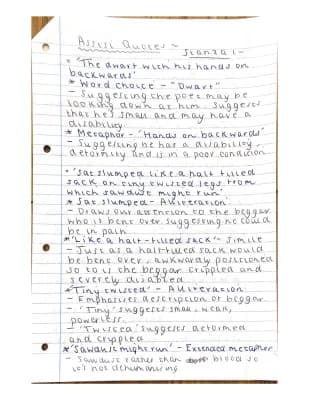 Assisi Quotes ~
Stanza 1 -
* 'The dwarf with his hands on
backwards'
* Word choice - "Dwarf"
- Suggesting the poet may be
looking down at him. Suggests
that he's small and may have a
disability.
* Metaphor - 'Hands on backwards'
- Suggesting he has a disability,
deformity and is in a poor condition
* 'Sat slumped like a half filled
sack on tiny twisted legs from
which sawdust might run'
* Sat slumped - Alliteration
- Draws our attention to the beggar
who is bent over suggesting he could
be in pain
* 'Like a half-filled sack' - Simile
- Just as a half-filled sack would
be bent over, awkwardly positioned
so to is the beggar crippled and
severely disabled
* 'Tiny twisted' - Alliteration
- Emphasises description of beggar
- 'Tiny' suggests small, weak,
powerless.
- 'Twisted' suggests deformed
and crippled
* 'Sawdust might run' - Extended metaphor
- Sawdust rather than blood so
it's not dehumanising